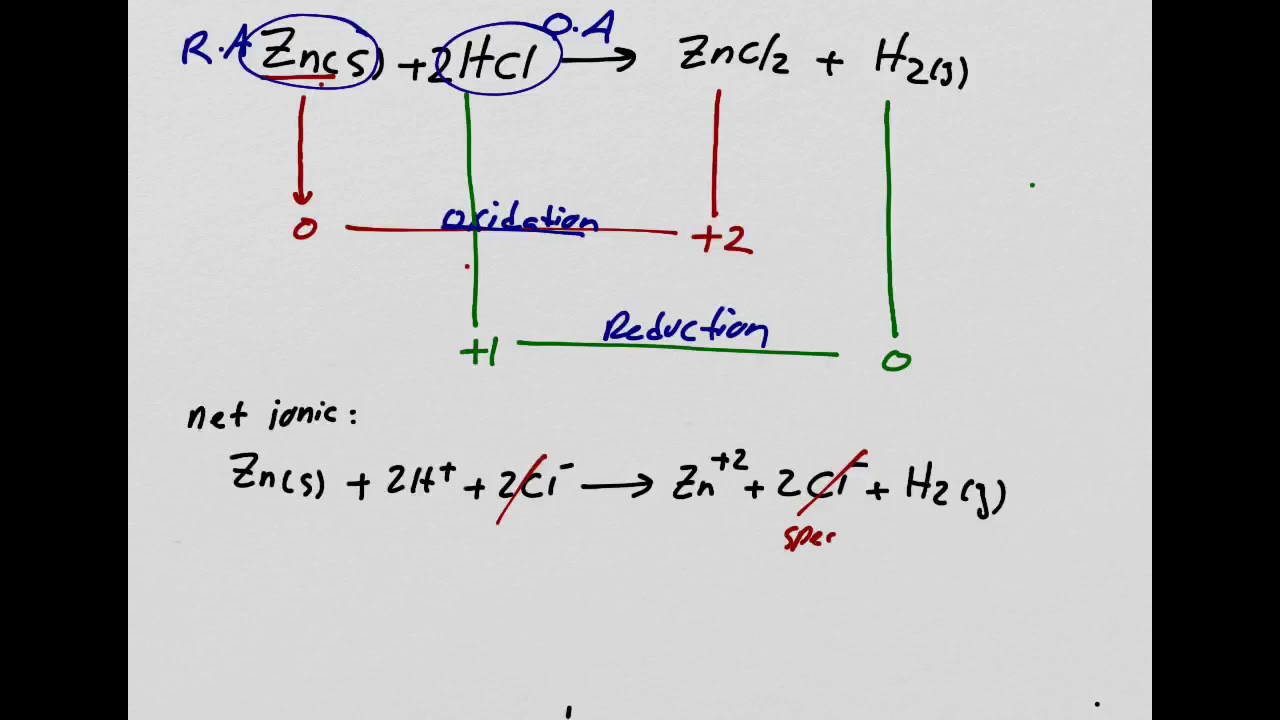 R.A Zn(s) + 2HCl O.A → ZnCl2 + H2(g)
0 oxidation +2
+1 Reduction 0
net ionic:
Zn(s) + 2H+ + 2Cl- → Zn+2 + 2Cl- + H2(g)
spec